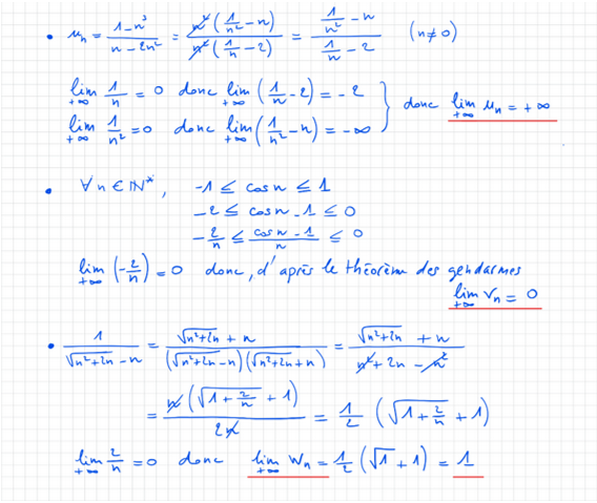 • uₙ = (1-n³)/(n-2n²) = n²(1/n² - n)/n²(1/n - 2) = (1/n² - n)/(1/n - 2) (n≠0)
lim +∞ 1/n = 0 donc lim +∞ (1/n - 2) = -2
lim +∞ 1/n² = 0 donc lim +∞ (1/n² - n) = -∞ } donc lim +∞ uₙ = +∞
• ∀n∈ℕ*, -1 ≤ cos n ≤ 1
-2 ≤ cos n - 1 ≤ 0
-2/n ≤ (cos n - 1)/n ≤ 0
lim +∞ (-2/n) = 0 donc, d'après le théorème des gendarmes
lim +∞ Vₙ = 0
• 1/(√(n²+2n) - n) = (√(n²+2n) + n)/((√(n²+2n) - n)(√(n²+2n) + n)) = (√(n²+2n) + n)/(n² + 2n - n²)
= n(√(1+2/n) + 1)/2n = 1/2 (√(1+2/n) + 1)
lim +∞ 2/n = 0 donc lim +∞ Wₙ = 1/2 (√1 + 1) = 1